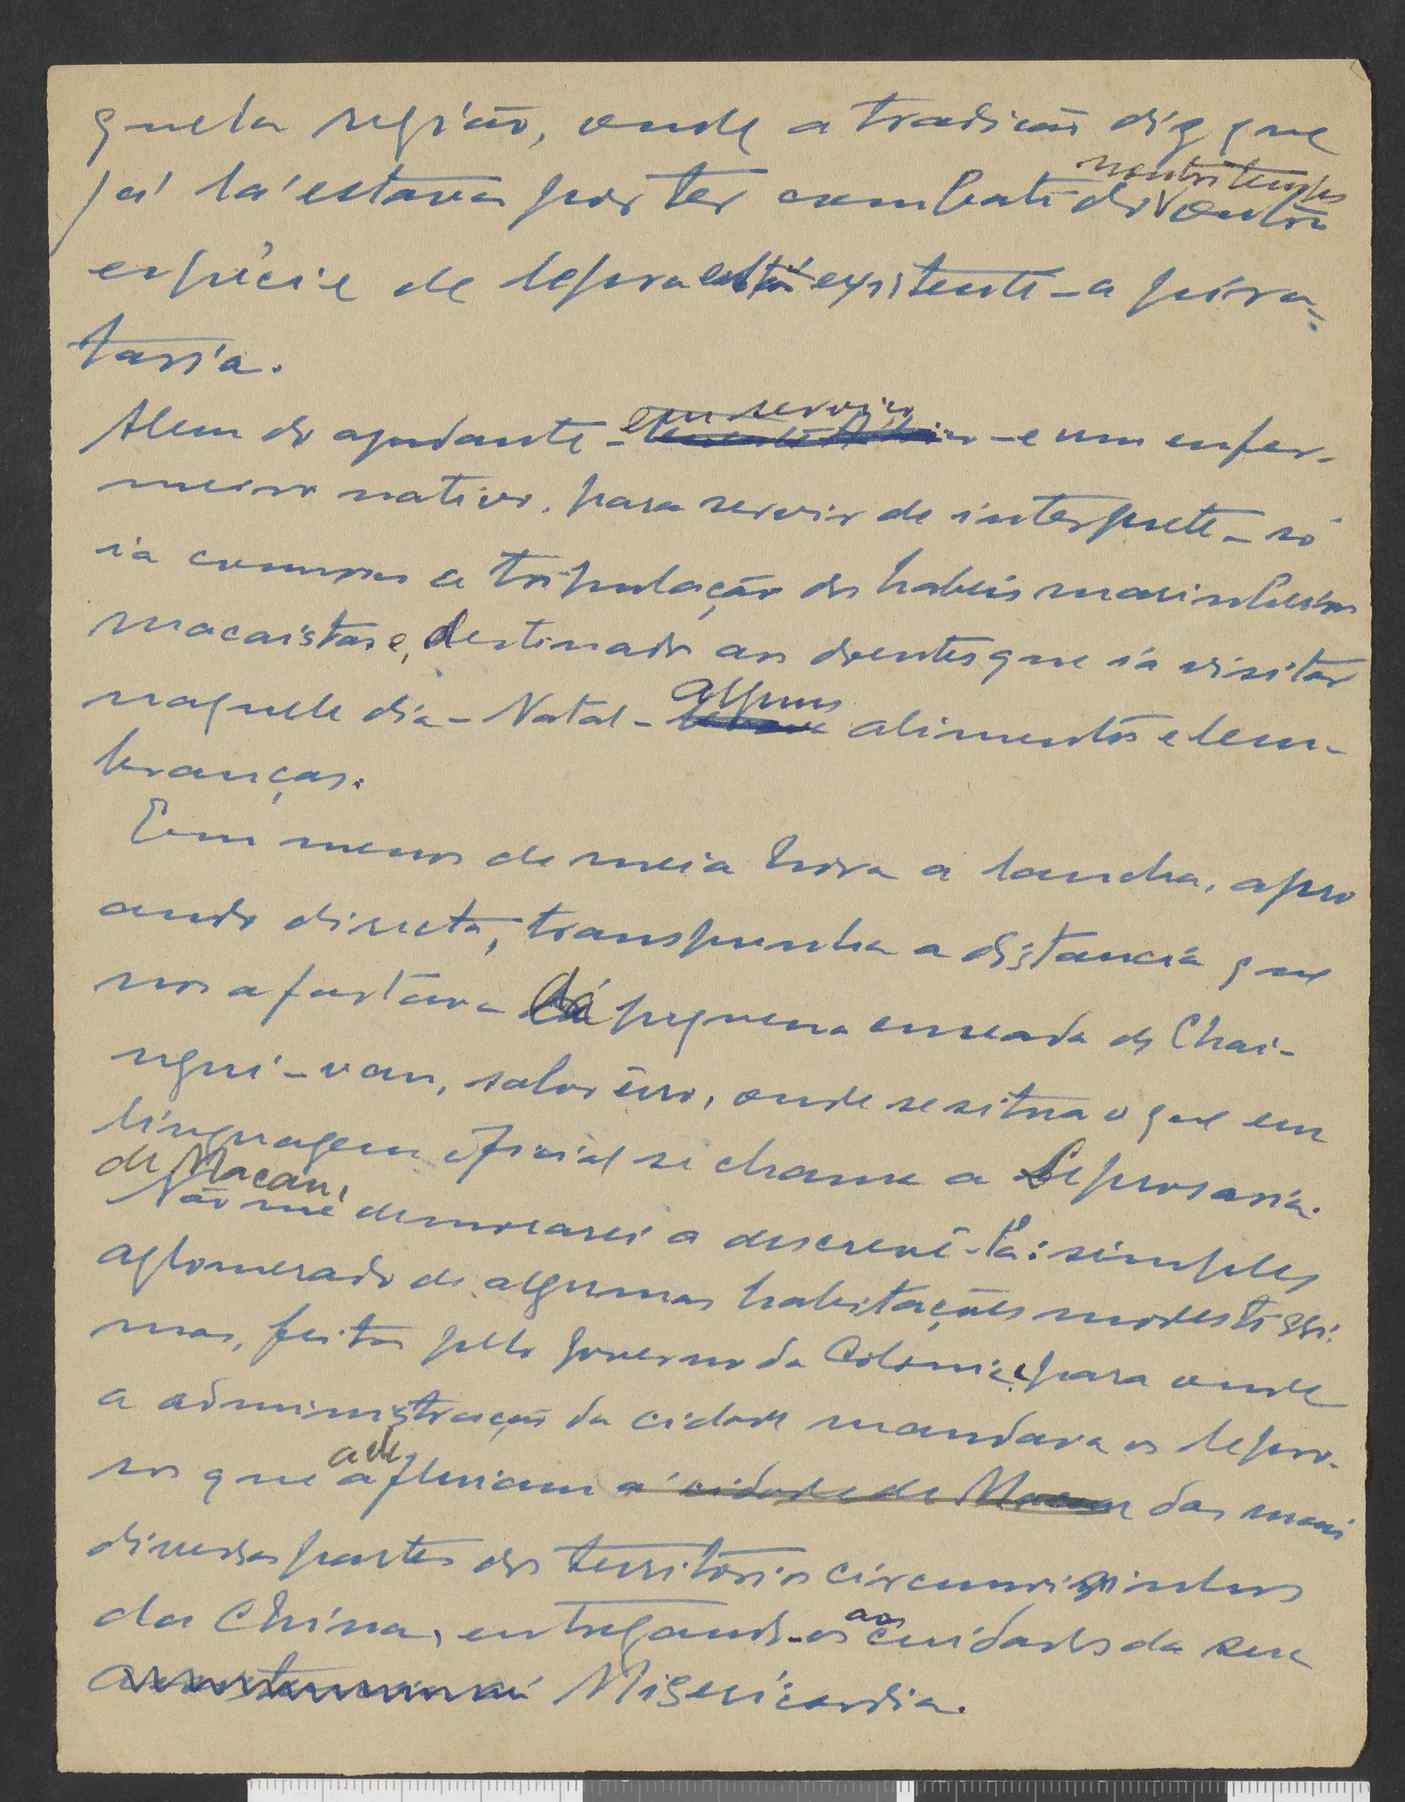 quela região, onde a tradição diz que
já lá estava por ter combatido noutros tempos outra
espécie de lepra então existente - a pira-
taria.
Alem do ajudante - em serviço - e um enfer-
meiro nativo, para servir de interprete - só
ia comnosco a tripulação de habeis marinheiros
macaistas e, destinado aos doentes que ia visitar
naquele dia - Natal - alguns alimentos e lem-
branças.
Em menos de meia hora a lancha, apro
ando directa, transpunha a distancia que
nos afastava da pequena enseada de Chai-
ngui-van, salvo êrro, onde se situa o que em
linguagem oficial se chama a Leprosaria
de Macau.
Não me demorarei a descrevê-la: simples
aglomerado de algumas habitações modestissi-
mas, feitas pelo governo da Colonia, e para onde
a administração da cidade mandava os lepro-
sos que ali afluiam á cidade de Macau das mais
diversas partes dos territorios circumvisinhos
da China, entregando-os aos cuidados da sua
Misericordia.